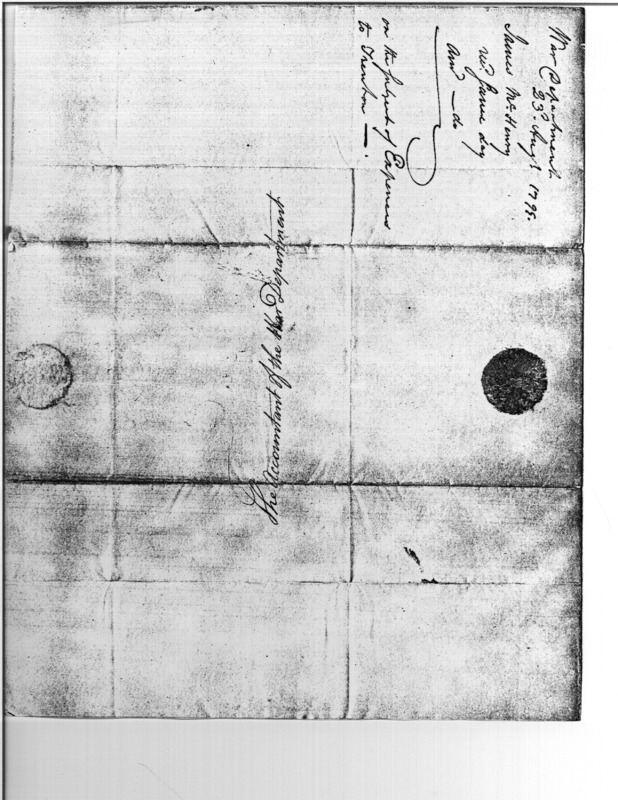 War Department
23d. Augt. 1798.
James McHenry
recd. same day
And — do
on the subject of Expenses
to Trenton —.
The Accountant of the War Department